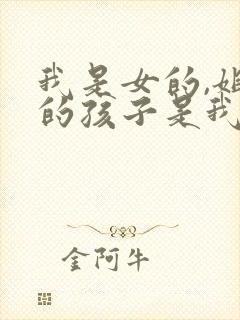 我是女的,姐
的孩子是我
金阿牛